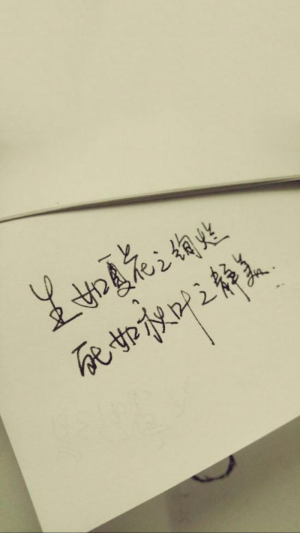 生如夏花之绚烂
死如秋叶之静美..